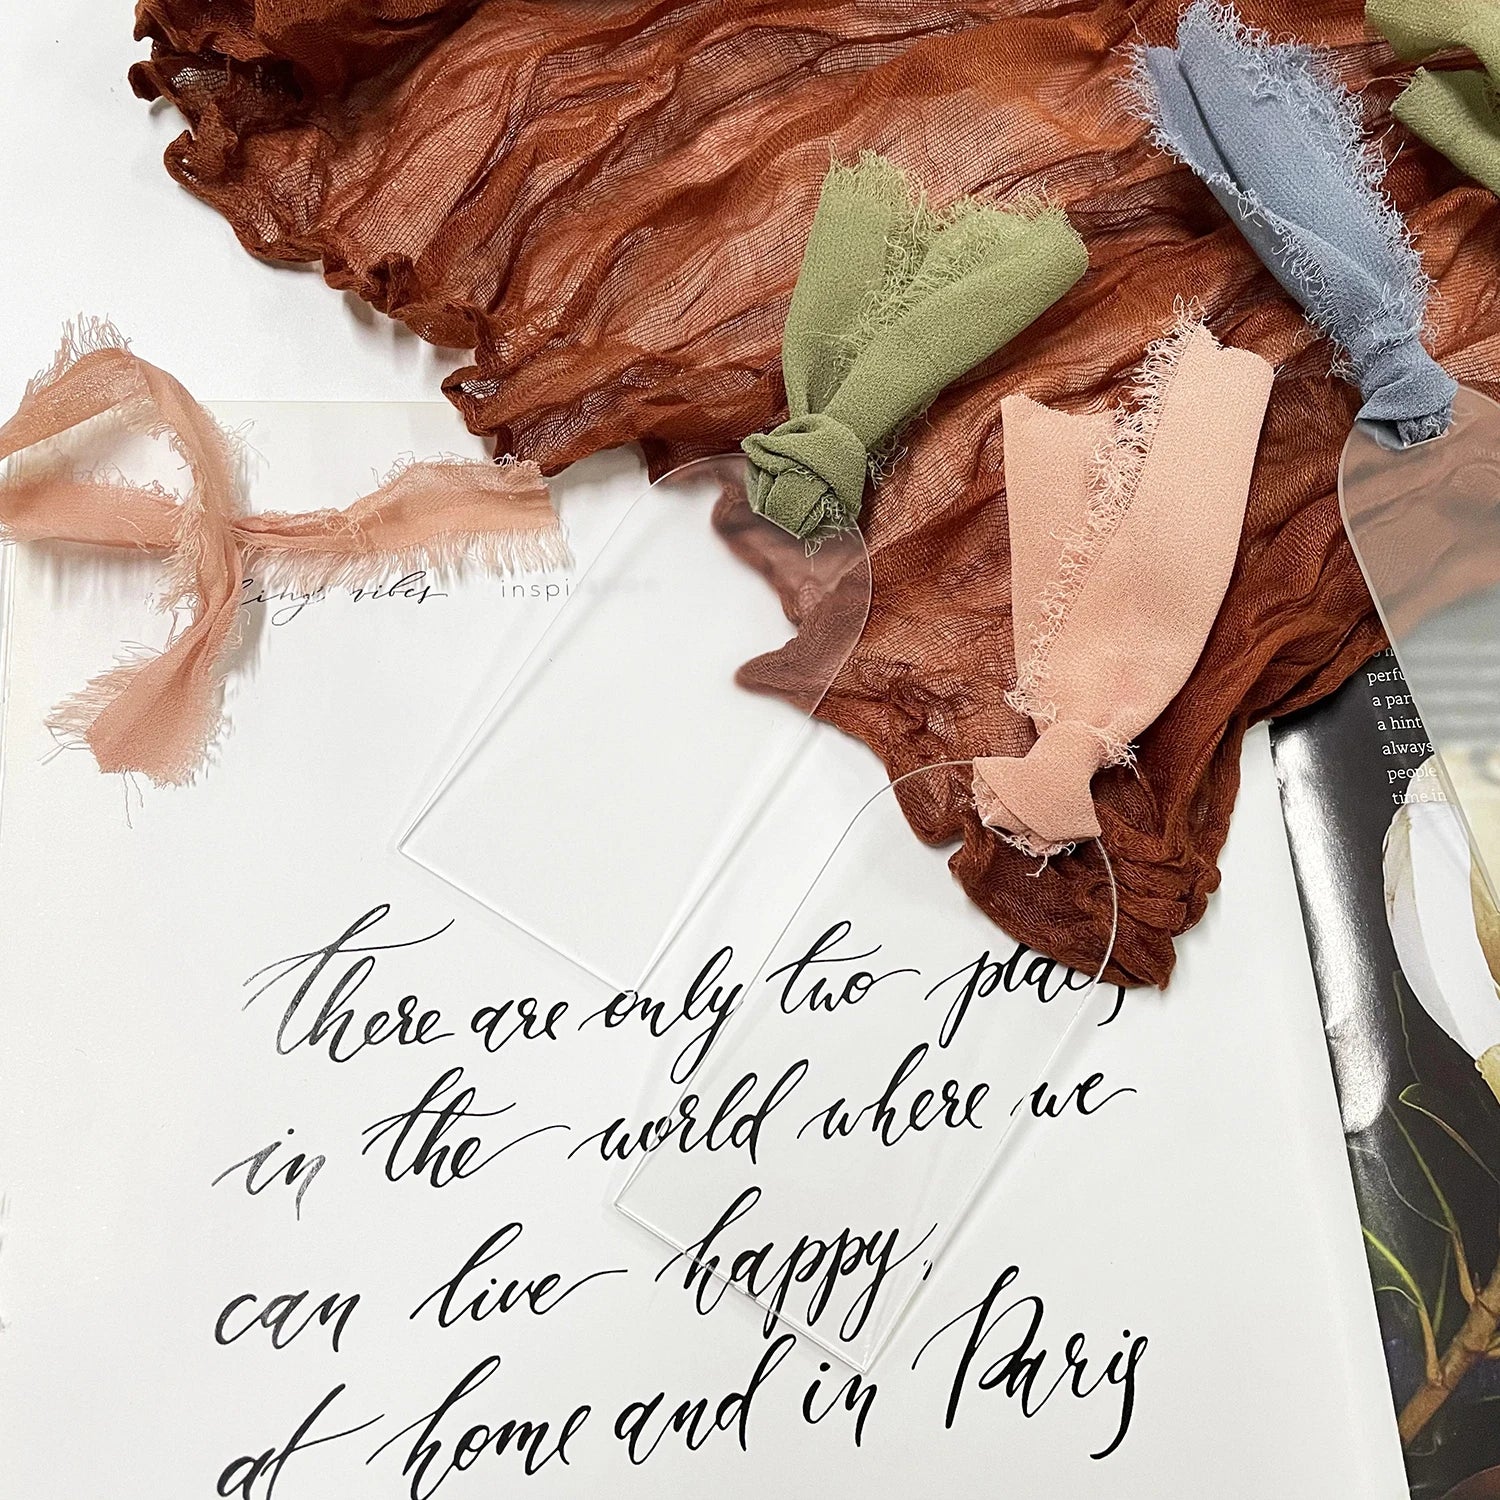 vibes inspi
there are only two places
in the world where we
can live happy,
at home and in Paris
a hint
always
people
time in